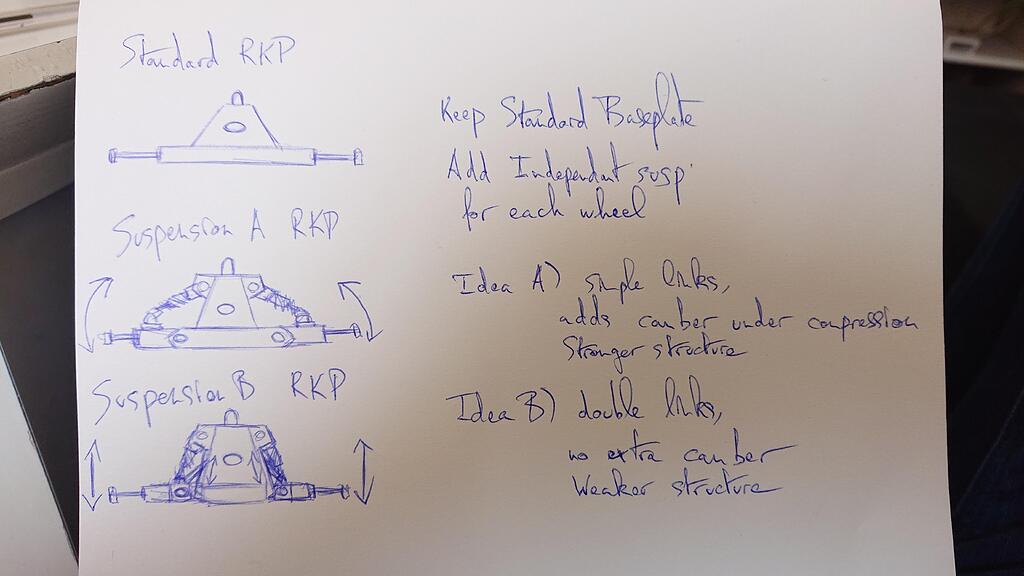 Standard RKP
Keep Standard Baseplate
Add Independant susp.
for each wheel
Suspension A RKP
Idea A) simple links,
adds camber under compression
Stronger structure
Suspension B RKP
Idea B) double links,
no extra camber
Weaker structure